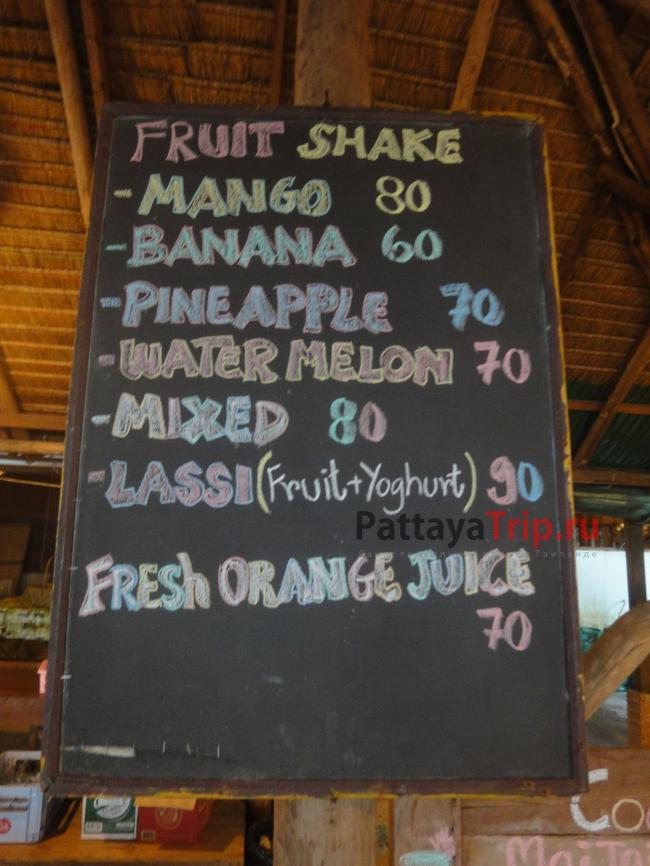 FRUIT SHAKE
- MANGO 80
- BANANA 60
- PINEAPPLE 70
- WATER MELON 70
- MIXED 80
- LASSI (Fruit + Yoghurt) 90
PattayaTrip.ru
FRESh ORANGE JUICE
70